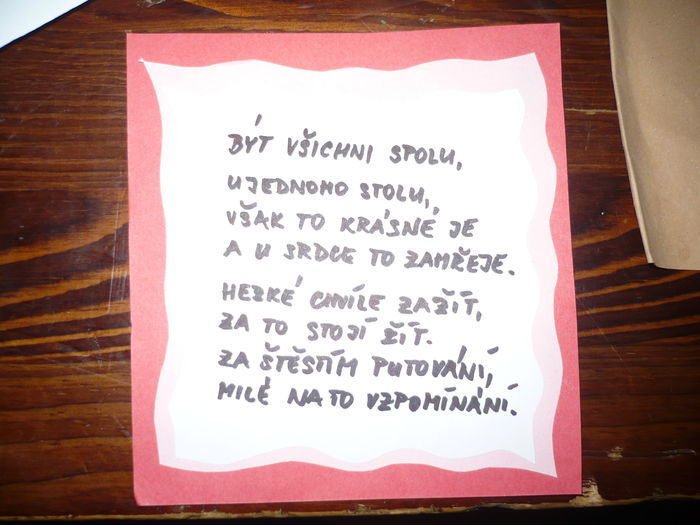 BÝT VŠICHNI SPOLU,
U JEDNOHO STOLU,
VŠAK TO KRÁSNÉ JE
A U SRDCE TO ZAHŘEJE.
HEZKÉ CHVÍLE ZAŽÍT,
ZA TO STOJÍ ŽÍT.
ZA ŠTĚSTÍM PUTOVÁNÍ,
MILÉ NA TO VZPOMÍNÁNÍ.